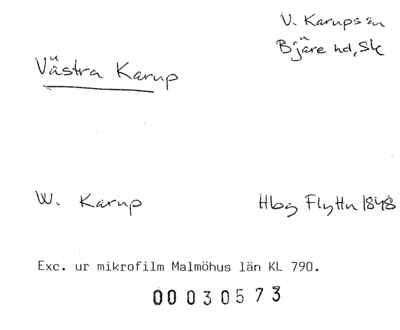 V. Karups sn
Bjäre hd, Sk
Västra Karup
W. Karup Hbg Flyttn 1848
Exc. ur mikrofilm Malmöhus län KL 790.
00030573